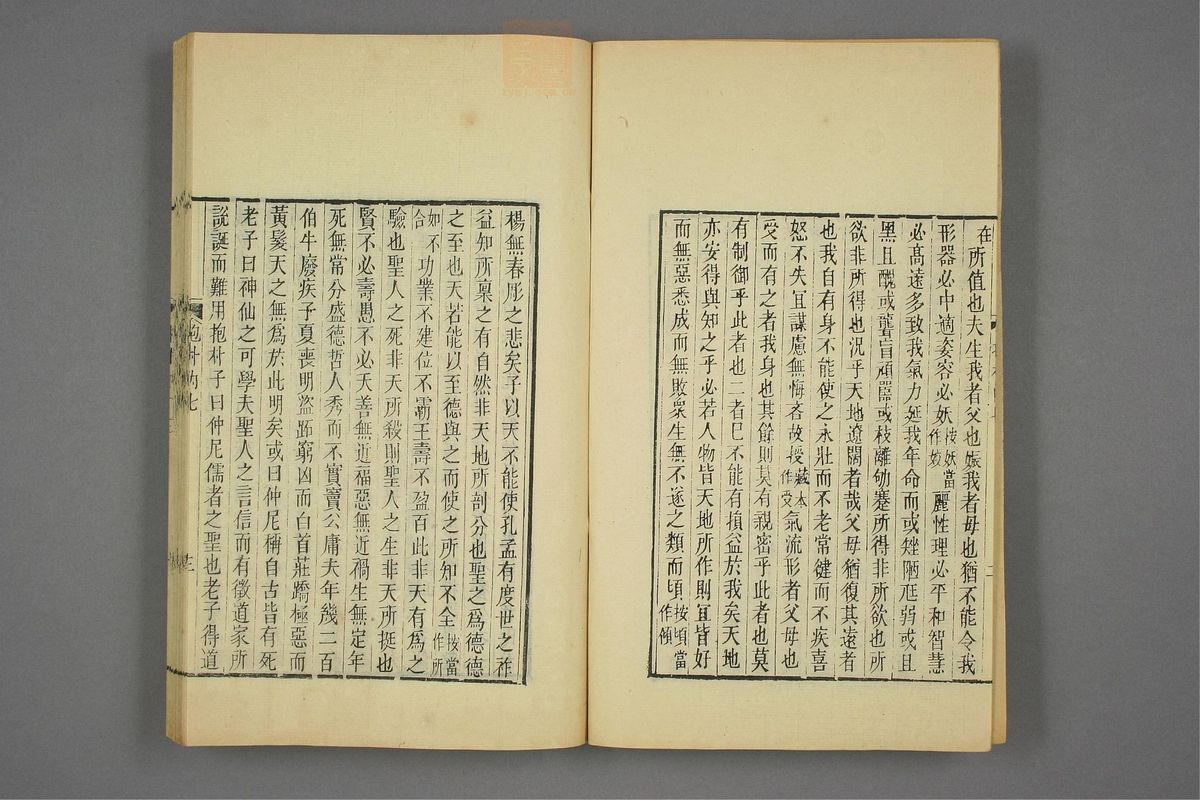 在所值也夫生我者父也娠我者母也猶不能令我
形器必中適姿容必妖按妖當作姣麗性理必平和智慧
必髙遠多致我氣力延我年命而或矬陋尫弱或且
黑且醜或聾盲頑嚚或枝離劬蹇所得非所欲也所
欲非所得也況乎天地遼闊者哉父母猶復其遠者
也我自有身不能使之永壯而不老常健而不疾喜
怒不失冝謀慮無悔吝故授藏本作受氣流形者父母也
受而有之者我身也其餘則莫有親密乎此者也莫
有制御乎此者也二者已不能有損益於我矣天地
亦安得與知之乎必若人物皆天地所作則冝皆好
而無惡悉成而無敗衆生無不遂之類而項按項當作傾
楊無春彫之悲矣子以天不能使孔孟有度世之祚
益知所禀之有自然非天地所剖分也聖之爲德德
之至也天若能以至德與之而使之所知不全按當作所
知不合功業不建位不霸王壽不盈百此非天有爲之
驗也聖人之死非天所殺則聖人之生非天所挺也
賢不必壽愚不必夭善無近福惡無近禍生無定年
死無常分盛德哲人秀而不實竇公庸夫年幾二百
伯牛廢疾子夏喪明盜跖窮凶而白首莊蹻極惡而
黃髮天之無爲於此明矣或曰仲尼稱自古皆有死
老子曰神仙之可學夫聖人之言信而有徵道家所
說誕而難用抱朴子曰仲尼儒者之聖也老子得道
抱朴內七